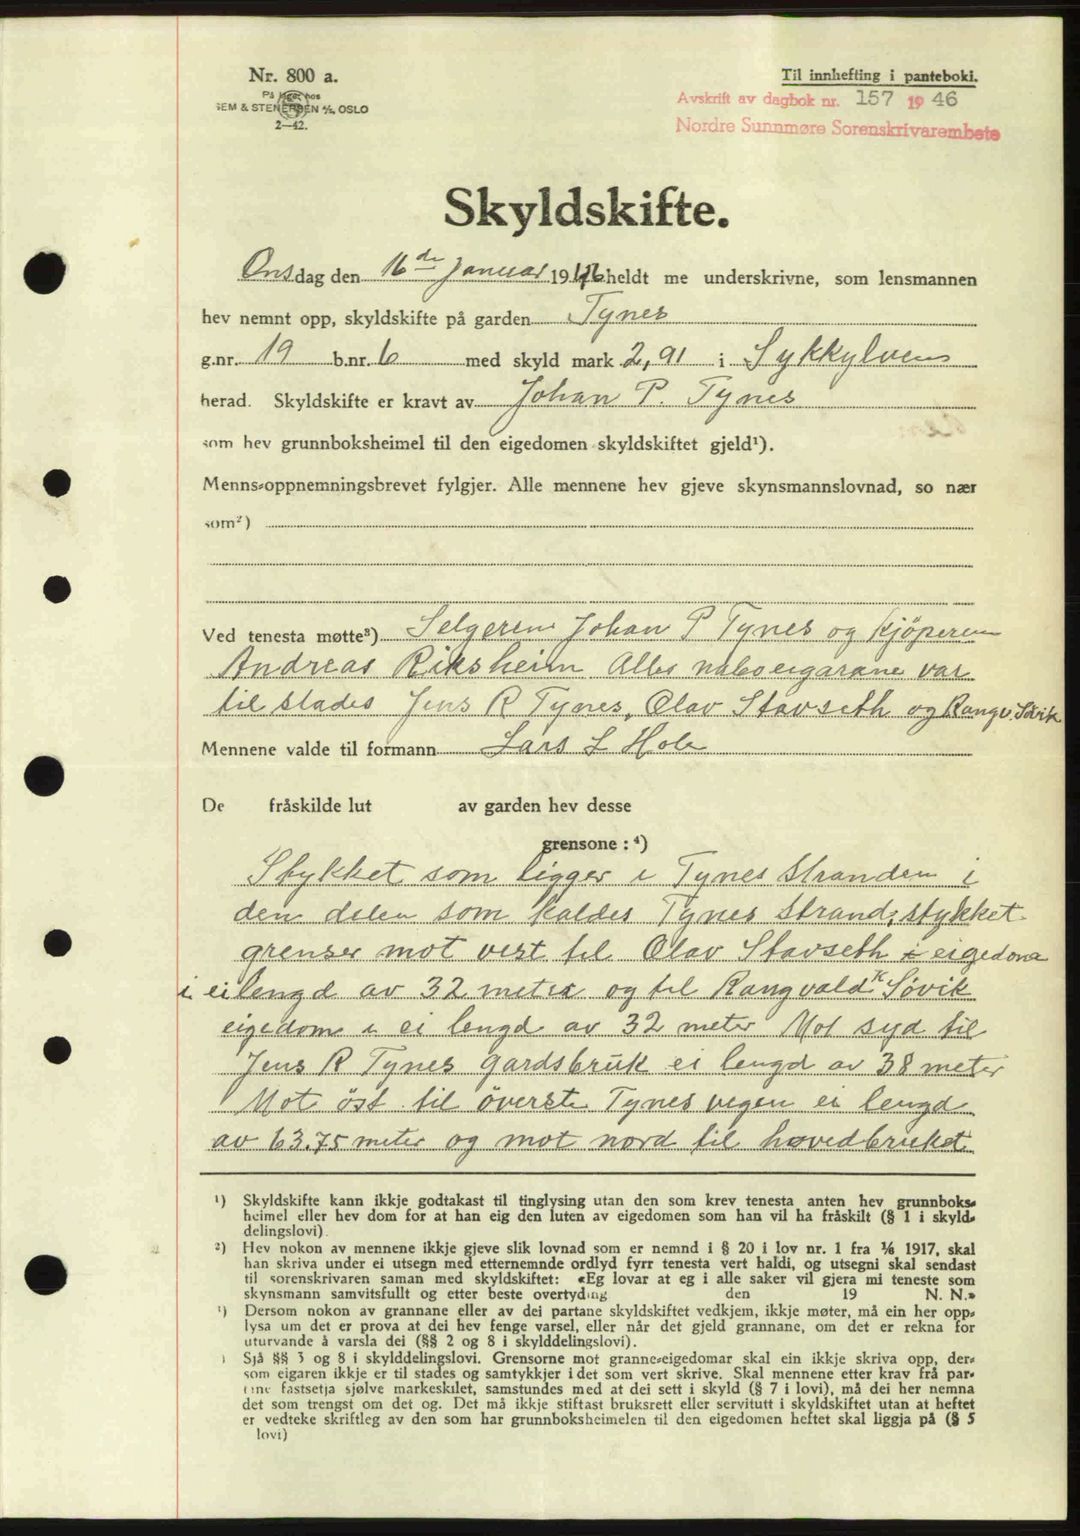 Nr. 800 a.
På lager hos
SEM & STENERSEN A/S, OSLO
2—42.
Til innhefting i panteboki.
Avskrift av dagbok nr. 157 1946
Nordre Sunnmøre Sorenskrivarembete
Skyldskifte.
Onsdag den 16de Januar 1946 heldt me underskrivne, som lensmannen
hev nemnt opp, skyldskifte på garden Tynes
g.nr. 19 b.nr. 6 med skyld mark 2,91 i Sykkylvens
herad. Skyldskifte er kravt av Johan P. Tynes
som hev grunnboksheimel til den eigedomen skyldskiftet gjeld¹).
Menns-oppnemningsbrevet fylgjer. Alle mennene hev gjeve skynsmannslovnad, so nær
som²)
Ved tenesta møtte³) Selgeren Johan P Tynes og kjöperen
Andreas Riksheim Alles naboeigarane var
til stades Jens R Tynes, Olav Stavseth og Rangv. Sövik
Mennene valde til formann Lars L Hole
De fråskilde lut av garden hev desse
grensone : ⁴)
Stykket som ligger i Tynes Stranden i
den delen som kaldes Tynes Strand; stykket
grenser mot vest til Olav Stavseth i eigedoma
i ei lengd av 32 meter og til Rangvald K Sövik
eigedom i ei lengd av 32 meter Mot syd til
Jens R Tynes gardsbruk ei lengd av 38 meter
Mot öst til överste Tynes vegen ei lengd
av 63.75 meter og mot nord til hovedbruket
¹) Skyldskifte kann ikkje godtakast til tinglysing utan den som krev tenesta anten hev grunnboks-
heimel eller hev dom for at han eig den luten av eigedomen som han vil ha fråskilt (§ 1 i skyld-
delingslovi).
²) Hev nokon av mennene ikkje gjeve slik lovnad som er nemnd i § 20 i lov nr. 1 fra 1/6 1917, skal
han skriva under ei utsegn med etternemnde ordlyd fyrr tenesta vert haldi, og utsegni skal sendast
til sorenskrivaren saman med skyldskiftet: «Eg lovar at eg i alle saker vil gjera mi teneste som
skynsmann samvitsfullt og etter beste overtyding den 19 N. N.»
³) Dersom nokon av grannane eller av dei partane skyldskiftet vedkjem, ikkje møter, må ein her opp-
lysa um det er prova at dei hev fenge varsel, eller når det gjeld grannane, om det er rekna for
uturvande å varsla dei (§§ 2 og 8 i skylddelingslovi).
) Sjå §§ 3 og 8 i skylddelingslovi. Grensorne mot granne-eigedomar skal ein ikkje skriva opp, der-
som eigaren ikkje er til stades og samtykkjer i det som vert skrive. Skal mennene etter krav frå par-
tane fastsetja sjølve markeskilet, samstundes med at dei sett i skyld (§ 7 i lovi), må dei her nemna
det som trengst om det og. Det må ikkje stiftast bruksrett eller servitutt i skyldskiftet utan at heftet
er vedteke skriftleg av den som har grunnboksheimelen til den eigedomen heftet skal liggja på (§ 5
lovi)